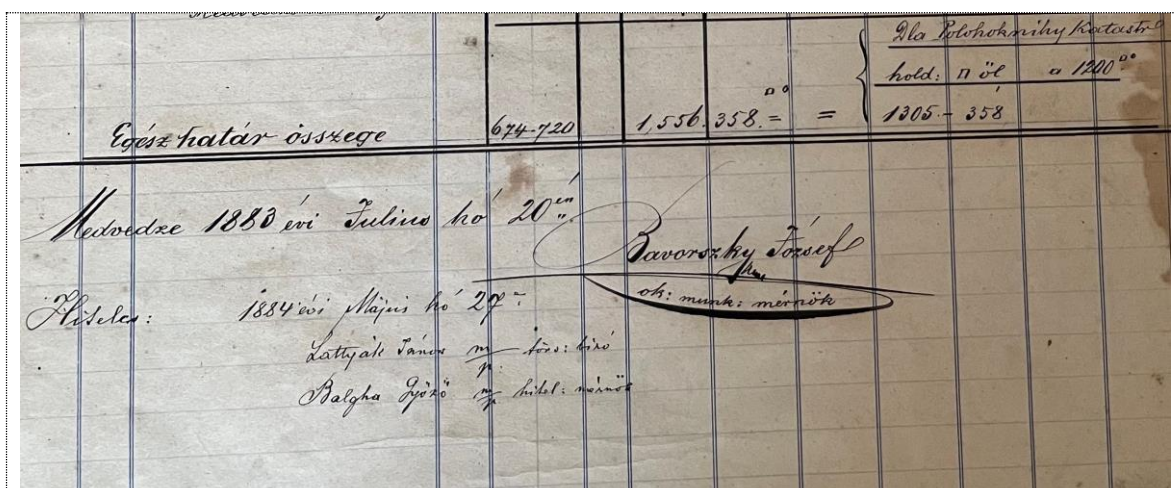 Dla Polohoknihy Katastr
hold: □ öl a 1200 □°
Egész határ összege 674-720 1,556. 358. □° = = 1305.- 358
Medvedze 1883 évi Julius hó 20 én
Bavorszky József
ok: munk: mérnök
Hiteles: 1884 évi Május hó 27
Lattyák János m/p. törv: biró
Balgha Győző m/p hitel: mérnök